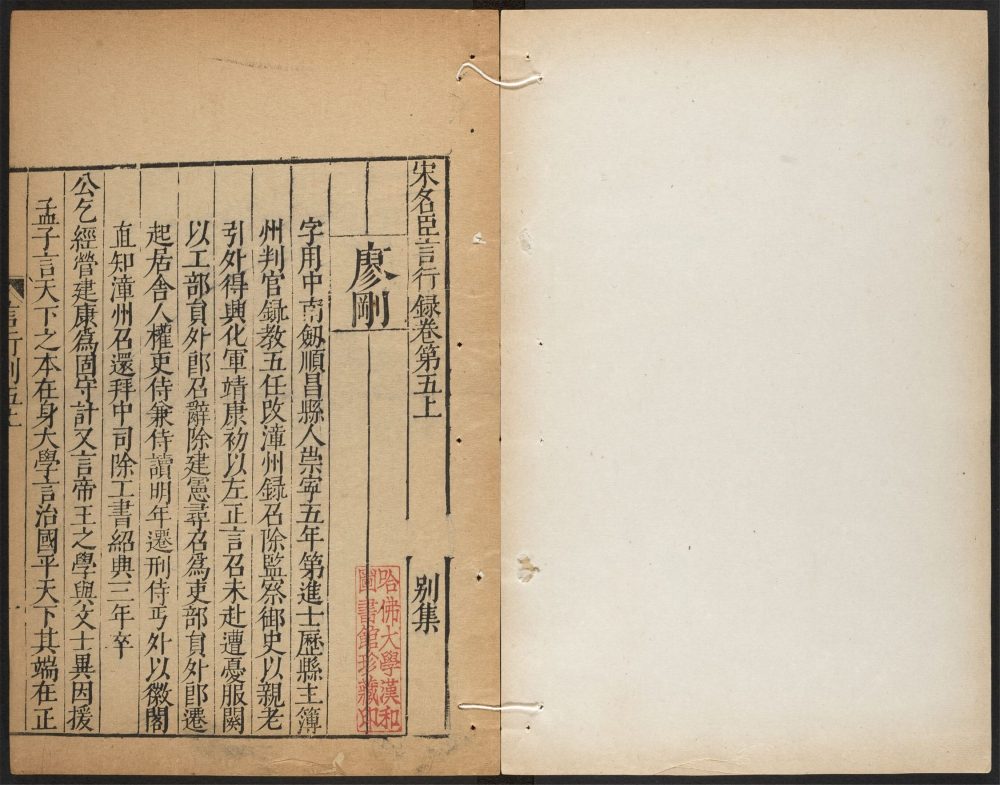 宋名臣言行録卷第五上
別集
廖剛
字用中南劔順昌縣人崇寧五年第進士歷縣主簿
州判官録教五任改漳州録召除監察御史以親老
引外得興化軍靖康初以左正言召未赴遭憂服闋
以工部員外郎召辭除建憲尋召爲吏部員外郎遷
起居舍人權吏侍兼侍讀明年遷刑侍丐外以徽閣
直知漳州召還拜中司除工書紹興三年卒
公乞經營建康爲固守計又言帝王之學與文士異因援
孟子言天下之本在身大學言治國平天下其端在正
言行別五上
一
哈佛大學漢和
圖書館珍藏印